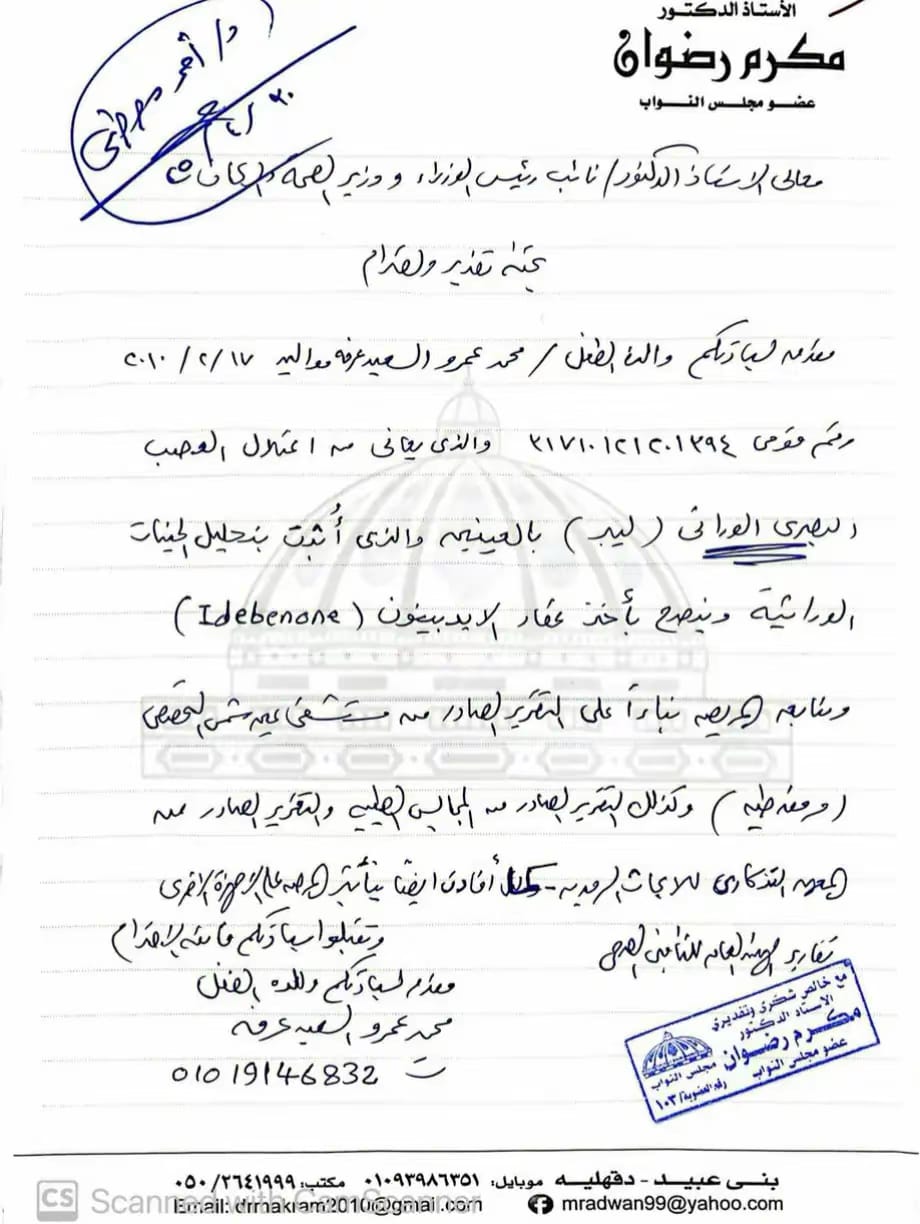 الأستاذ الدكتور
مكرم رضوان
عضو مجلس النواب
د/ أحمد مصطفى
٣٠/٤
معالى الاستاذ الدكتور/ نائب رئيس الوزراء و وزير الصحة والسكان
تحية تقدير واحترام
مقدمه لسيادتكم والدة الطفل / محمد عمرو السعيد عرفه مواليد ١٧/٢/٢٠١٠
رقم قومى ٣١٧١٠١٢١٢٠١٣٩٤ والذى يعانى من اعتلال العصب
البصرى الوراثى (ليبر) بالعينين والذى أُثبت بتحليل الجينات
الوراثية وينصح بأخذ عقار الايديبينون (Idebenone)
ومتابعة المريض بناءاً على التقرير الصادر من مستشفى عين شمس التخصصى
(مرفق طيه) وكذلك التقرير الصادر من المجالس الطبيه والتقرير الصادر عن
المعهد التذكارى للابحاث الرمديه - أفادت ايضا بتأثير المرض على الاجهزة الاخرى
تقارير الهيئه العامه للتأمين الصحى
وتقبلوا سيادتكم فائق الاحترام
مقدم لسيادتكم والده الطفل
محمد عمرو السعيد عرفه
ت 01019146832
مع خالص شكرى وتقديرى
الأستاذ الدكتور
مكرم رضوان
عضو مجلس النواب
مجلس النواب
رقم العضوية/ ١٠٣
بنى عبيد - دقهليه موبايل: ٠١٠٩٣٩٨٦٣٥١ مكتب: ٠٥٠/٢٦٤١٩٩٩
Email: drmakram2010@gmail.com mradwan99@yahoo.com
CS Scanned with CamScanner